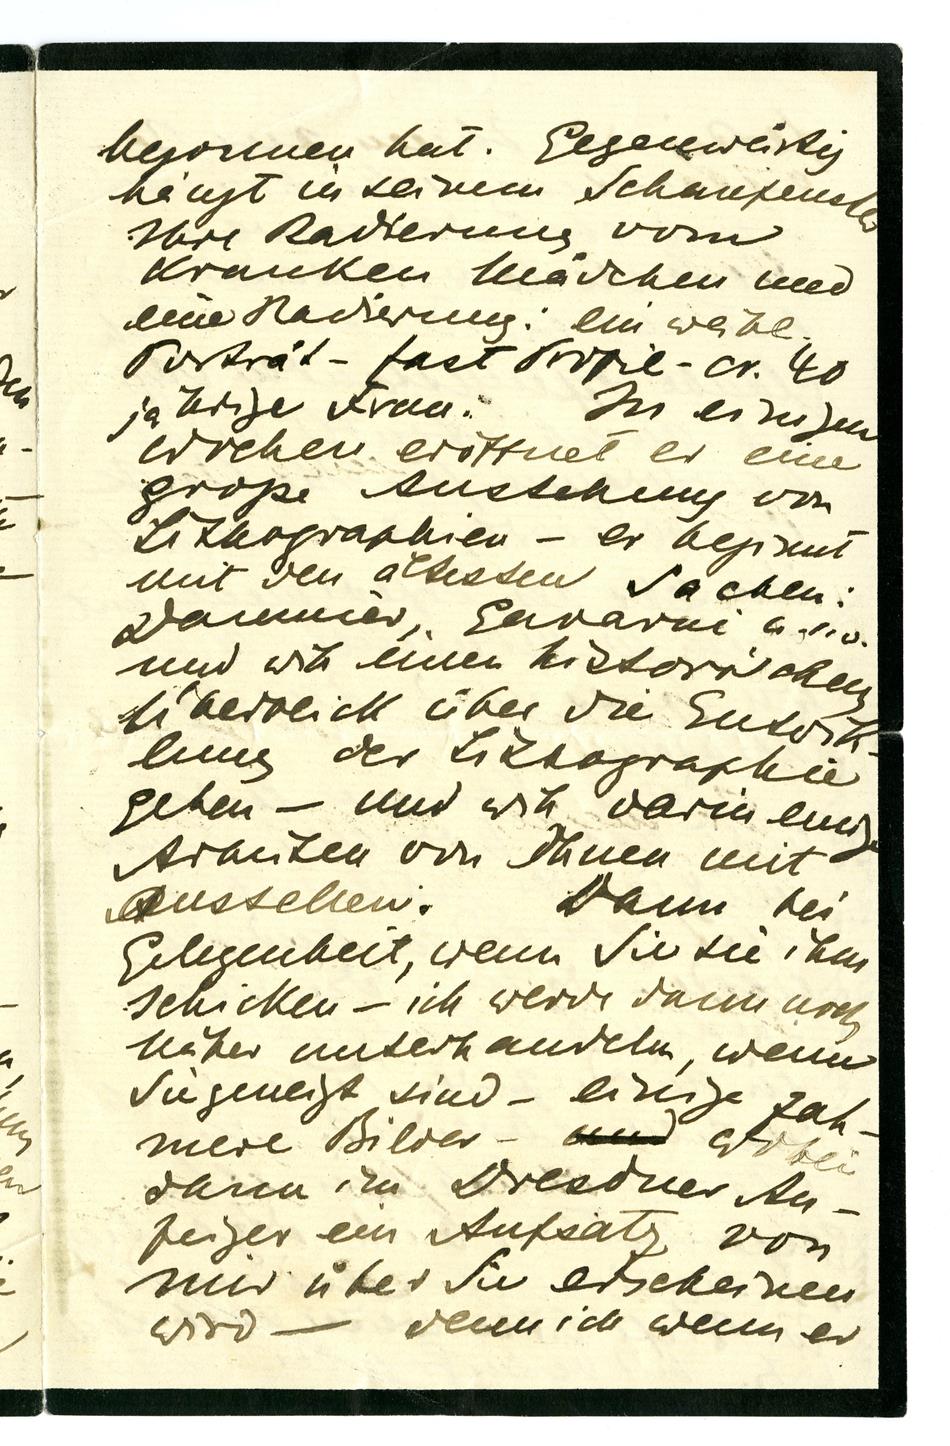 begonnen hat. Gegenwärtig
hängt in seinem Schaufenster
Ihre Radierung vom
Kranken Mädchen und
eine Radierung: ein weibl.
Porträt – fast Profil – cr. 40
jährige Frau. In einigen
Wochen eröffnet er eine
große Ausstellung von
Lithographien – er beginnt
mit den ältesten Sachen:
Daumier, Gavarni u.s.w.
und will einen historischen
Überblick über die Entwik-
lung der Lithographie
geben – und will darin einige
Arbeiten von Ihnen mit
ausstellen. Dann bei
Gelegenheit, wenn Sie sie ihm
schicken – ich werde dann noch
näher unterhandeln, wenn
Sie geneigt sind – einige zah-
mere Bilder – und wobei
dann im Dresdner An-
zeiger ein Aufsatz von
mir über Sie erscheinen
wird — denn ich wenn er